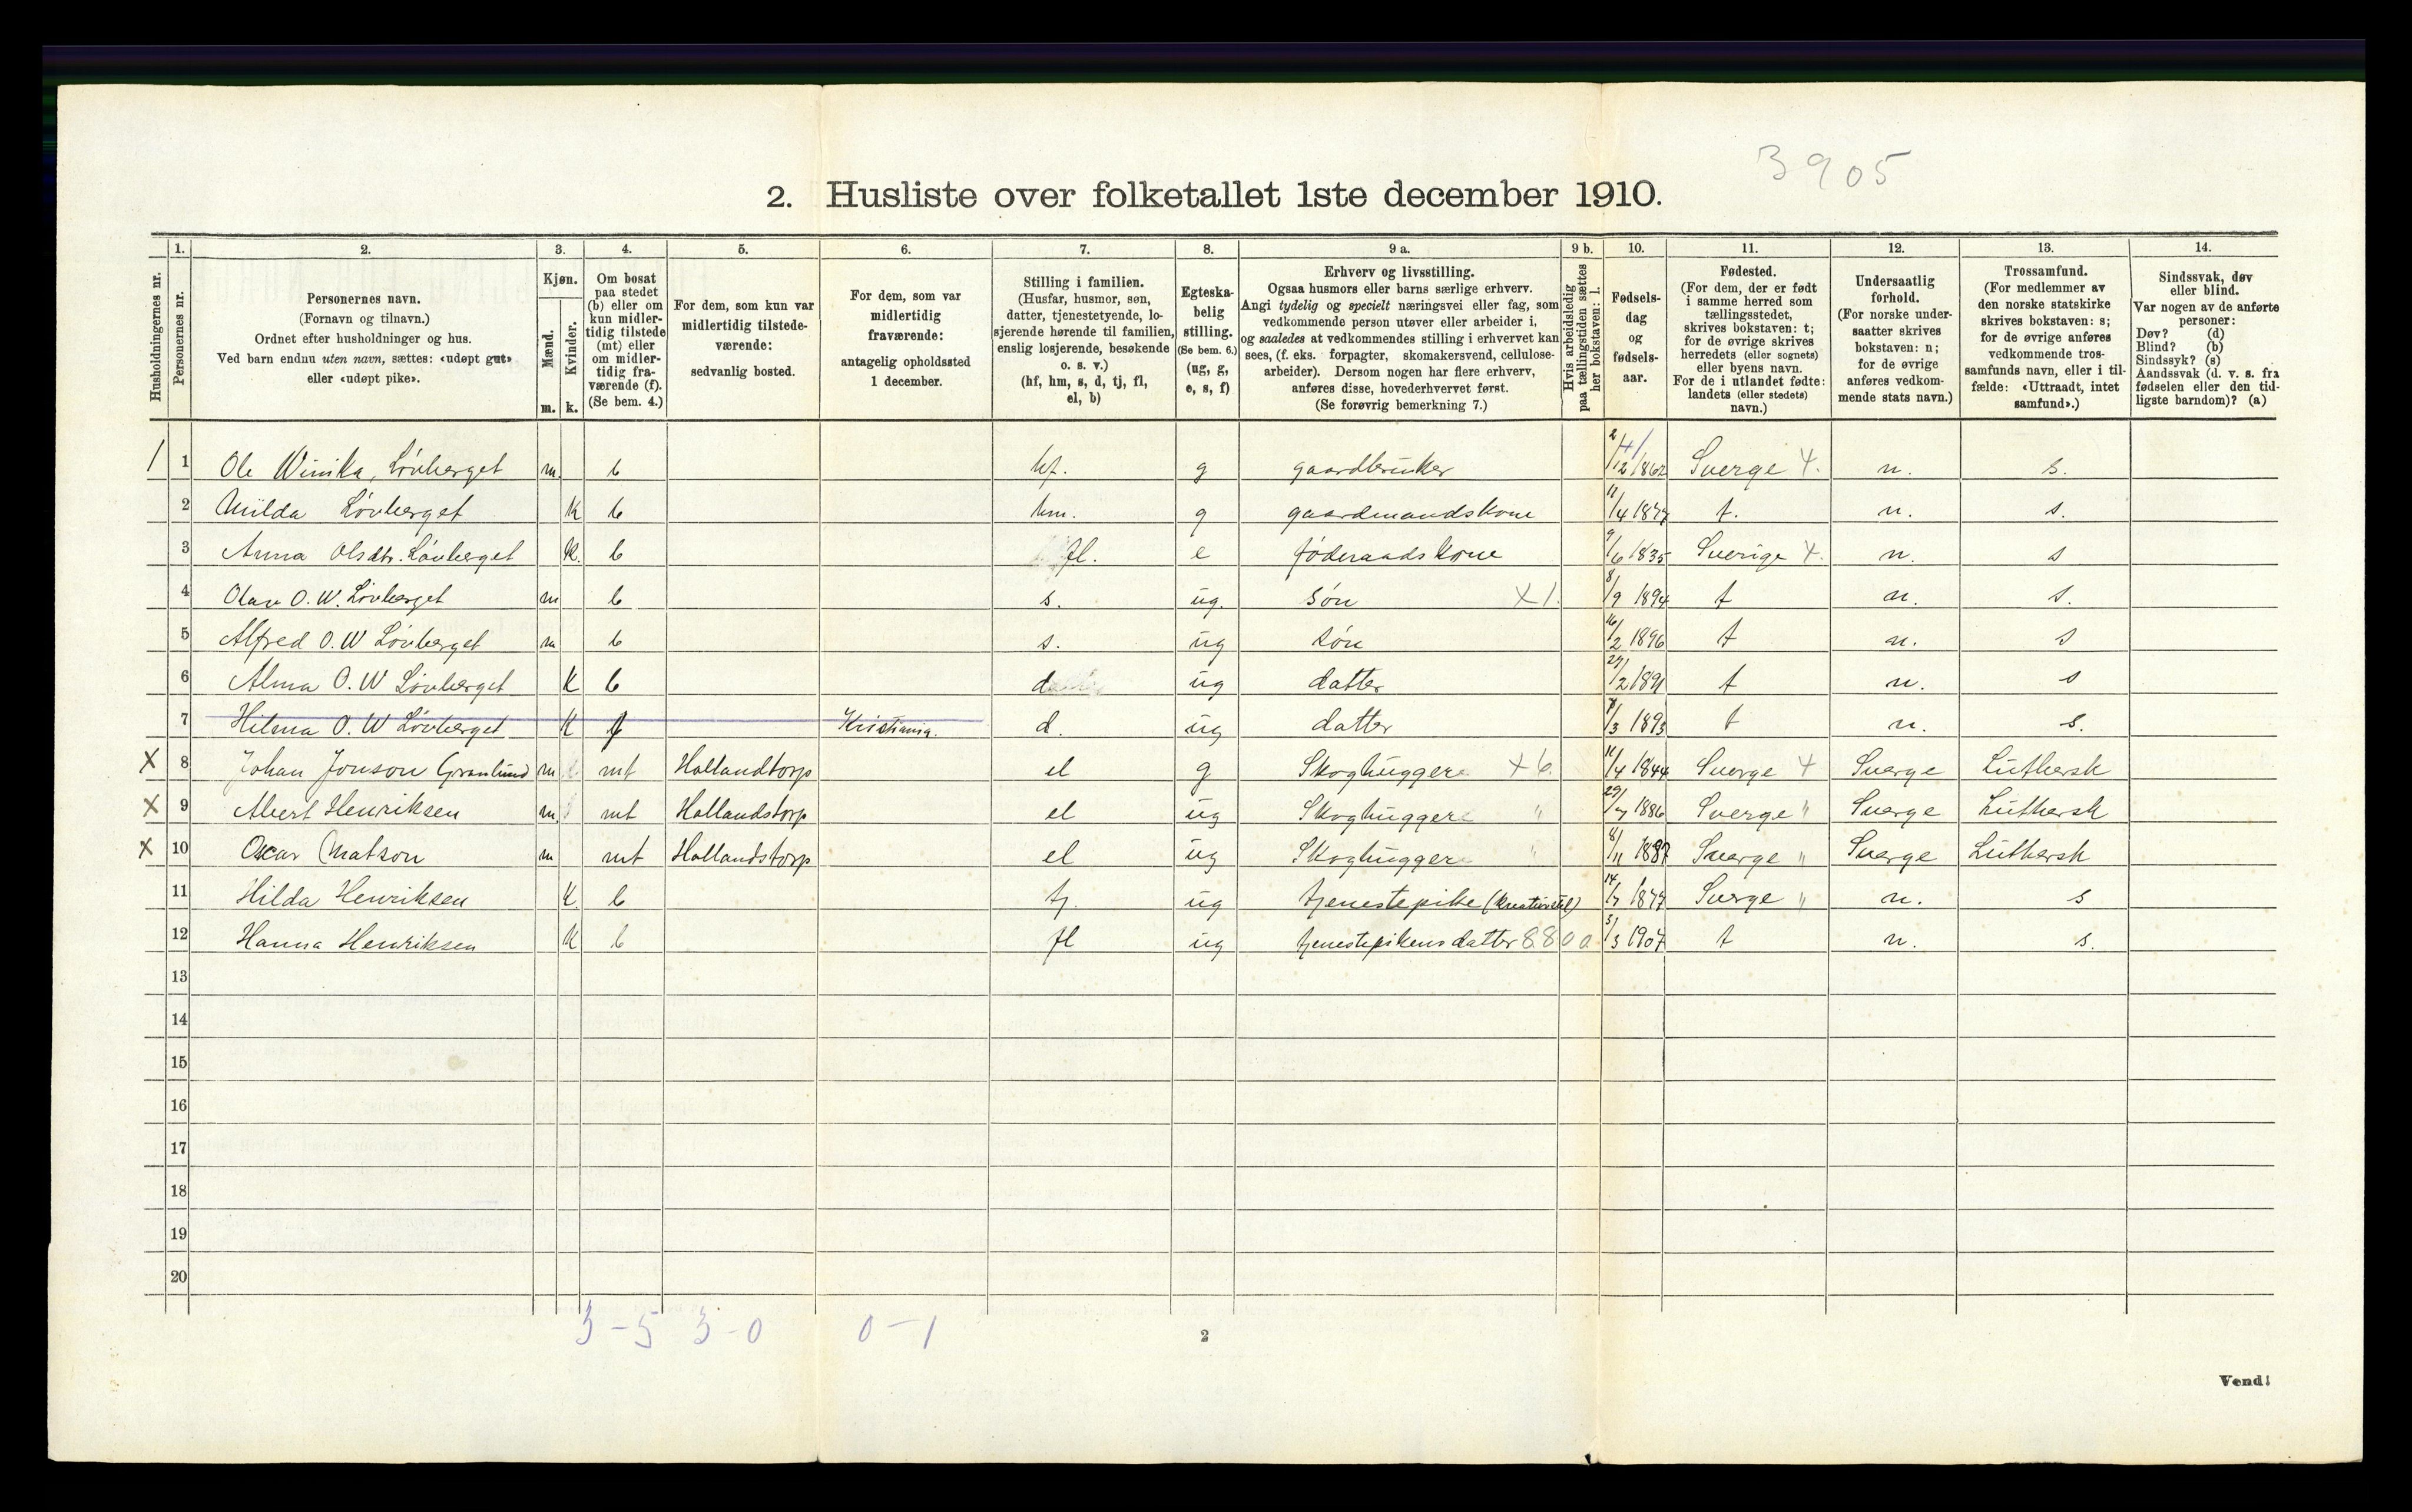 3905
2. Husliste over folketallet 1ste december 1910.
Husholdningernes nr.
1. Personernes nr.
2. Personernes navn. (Fornavn og tilnavn.) Ordnet efter husholdninger og hus. Ved barn endnu uten navn, sættes: «udøpt gut» eller «udøpt pike».
3. Kjøn. Mænd. m. Kvinder. k.
4. Om bosat paa stedet (b) eller om kun midlertidig tilstede (mt) eller om midlertidig fraværende (f). (Se bem. 4.)
5. For dem, som kun var midlertidig tilstedeværende: sedvanlig bosted.
6. For dem, som var midlertidig fraværende: antagelig opholdssted 1 december.
7. Stilling i familien. (Husfar, husmor, søn, datter, tjenestetyende, losjerende hørende til familien, enslig losjerende, besøkende o. s. v.) (hf, hm, s, d, tj, fl, el, b)
8. Egteskabelig stilling. (Se bem. 6.) (ug, g, e, s, f)
9 a. Erhverv og livsstilling. Ogsaa husmors eller barns særlige erhverv. Angi tydelig og specielt næringsvei eller fag, som vedkommende person utøver eller arbeider i, og saaledes at vedkommendes stilling i erhvervet kan sees, (f. eks. forpagter, skomakersvend, cellulosearbeider). Dersom nogen har flere erhverv, anføres disse, hovederhvervet først. (Se forøvrig bemerkning 7.)
9 b. Hvis arbeidsledig paa tællingstiden sættes her bokstaven: l.
10. Fødselsdag og fødselsaar.
11. Fødested. (For dem, der er født i samme herred som tællingsstedet, skrives bokstaven: t; for de øvrige skrives herredets (eller sognets) eller byens navn. For de i utlandet fødte: landets (eller stedets) navn.)
12. Undersaatlig forhold. (For norske undersaatter skrives bokstaven: n; for de øvrige anføres vedkommende stats navn.)
13. Trossamfund. (For medlemmer av den norske statskirke skrives bokstaven: s; for de øvrige anføres vedkommende trossamfunds navn, eller i tilfælde: «Uttraadt, intet samfund».)
14. Sindssvak, døv eller blind. Var nogen av de anførte personer: Døv? (d) Blind? (b) Sindssyk? (s) Aandssvak (d. v. s. fra fødselen eller den tidligste barndom)? (a)
1 1 Ole Winika, Lövberget m. b hf. g gaardbruker 2/12 1862 Sverge 4. n. s.
2 Milda Lövberget K b hm. g gaardmandskone 11/4 1877 t. n. s.
3 Anna Olsdtr. Lövberget K. b fl. e föderaadskone 9/6 1835 Sverige 4. n. s
4 Olav O. W. Lövberget m b s. ug. sön X1. 8/9 1894 t n. s.
5 Alfred O. W Lövberget m b s. ug sön 16/2 1896 t n. s
6 Alma O. W Lövberget K b d ug datter 27/2 1891 t n. s
7 Hilma O. W Lövberget K f Kristiania. d. ug datter 7/3 1893 t n. s.
X 8 Johan Jonson Granlund m mt Hallandtorp el g Skoghuggere X6. 11/4 1844 Sverge 4 Sverge Luthersk
X 9 Albert Henriksen m. mt Hollandstorp el ug Skoghuggere " 29/7 1886 Sverge " Sverge Luthersk
X 10 Oscar Matson m mt Hollandstorp el ug Skoghuggere " 8/11 1887 Sverge " Sverge Luthersk
11 Hilda Henriksen K. b tj. ug tjenestepike (kreaturstel) 14/7 1877 Sverge " n. s
12 Hanna Henriksen K b fl ug tjenestepikens datter 8800 3/3 1907 t n. s.
13
14
15
16
17
18
19
20
3-5 3-0 0-1
2
Vend!